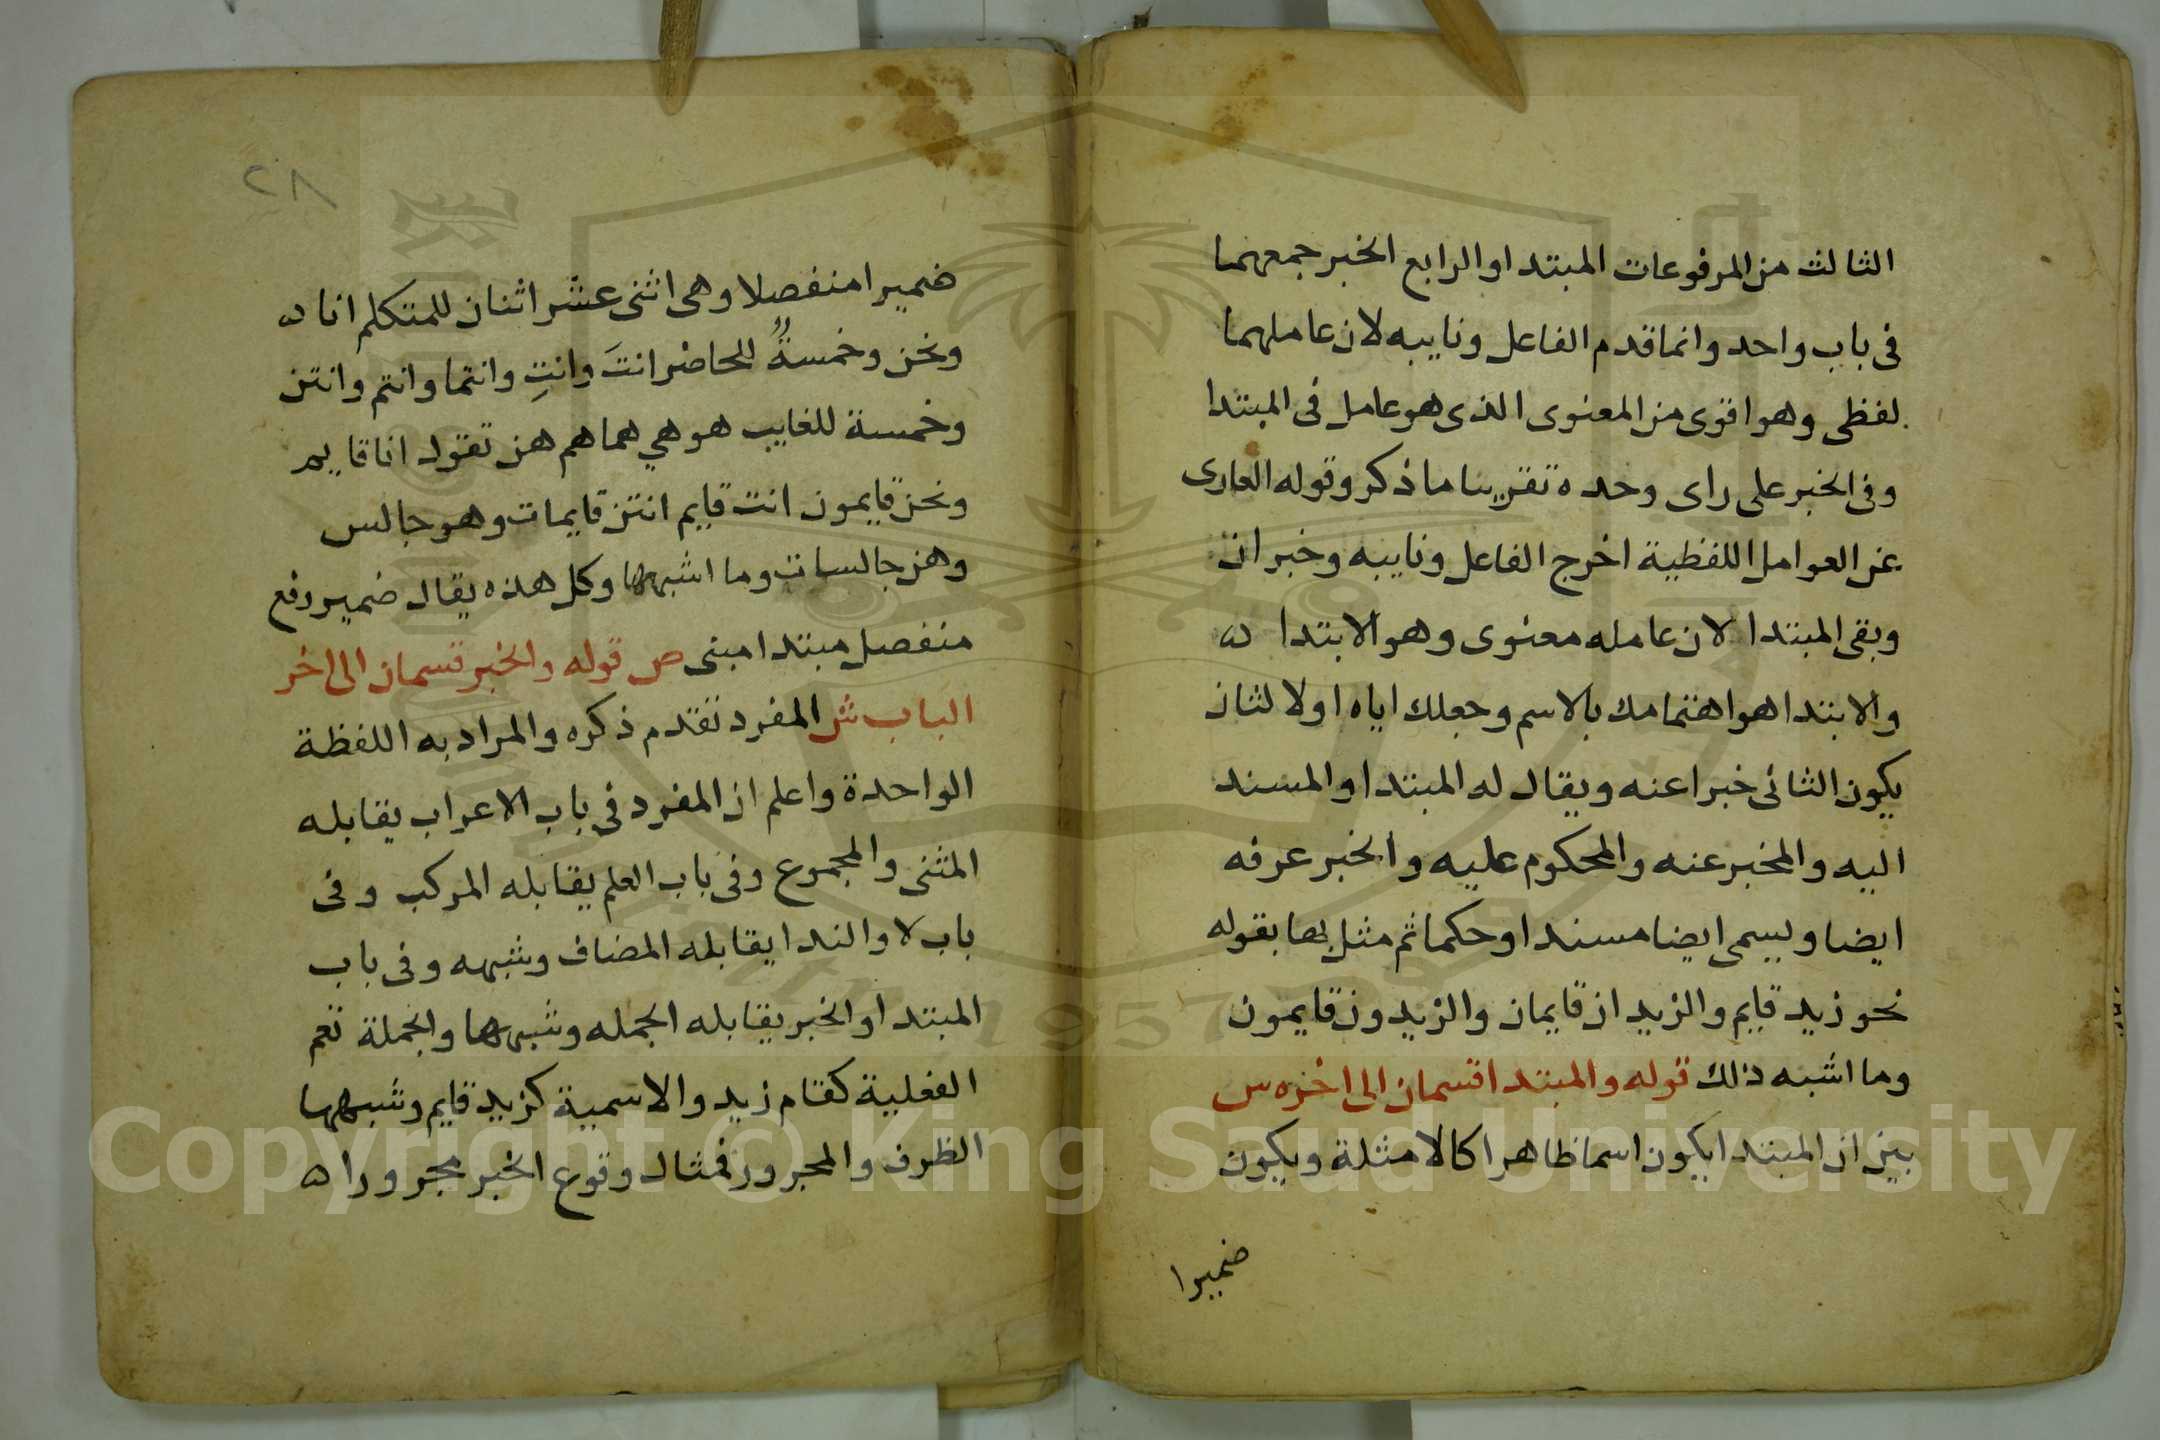 الثالث من المرفوعات المبتدا والرابع الخبر جمعهما
فى باب واحد وانما قدم الفاعل ونايبه لان عاملهما
لفظى وهو اقوى من المعنوى الذى هو عامل فى المبتدا
وفى الخبر على راى وحده تقريبا ما ذكر وقوله العارى
عن العوامل اللفظية اخرج الفاعل ونايبه وخبر ان
وبقى المبتدا لان عامله معنوى وهو الابتدا ه
والابتدا هو اهتمامك بالاسم وجعلك اياه اولا لثان
يكون الثانى خبرا عنه ويقال له المبتدا والمسند
اليه والمخبر عنه والمحكوم عليه والخبر عرفه
ايضا ويسمى ايضا مسندا وحكما ثم مثل لها بقوله
نحو زيد قايم والزيدان قايمان والزيدون قايمون
وما اشبه ذلك قوله والمبتدا قسمان الى اخره س
بين ان المبتدا يكون اسما ظاهرا كالامثلة ويكون
ضميرا
٢٨
ضميرا منفصلا وهى اثنى عشر اثنان للمتكلم انا ه
ونحن وخمسةٌ للحاضر انتَ وانتِ وانتما وانتم وانتن
وخمسة للغايب هو هي هما هم هن تقول انا قايم
ونحن قايمون انت قايم انتن قايمات وهو جالس
وهن جالسات وما اشبهها وكل هذه يقال ضمير رفع
منفصل مبتدا مبنى ص قوله والخبر قسمان الى اخر
الباب ش المفرد تقدم ذكره والمراد به اللفظة
الواحدة واعلم ان المفرد فى باب الاعراب يقابله
المثنى والمجموع وفى باب العلم يقابله المركب وفى
باب لا والندا يقابله المضاف وشبهه وفى باب
المبتدا والخبر يقابله الجمله وشبهها والجملة تعم
الفعلية كقام زيد والاسمية كزيد قايم وشبهها
الظرف والمجرور فمثال وقوع الخبر مجرورا ه
Copyright © King Saud University
1957